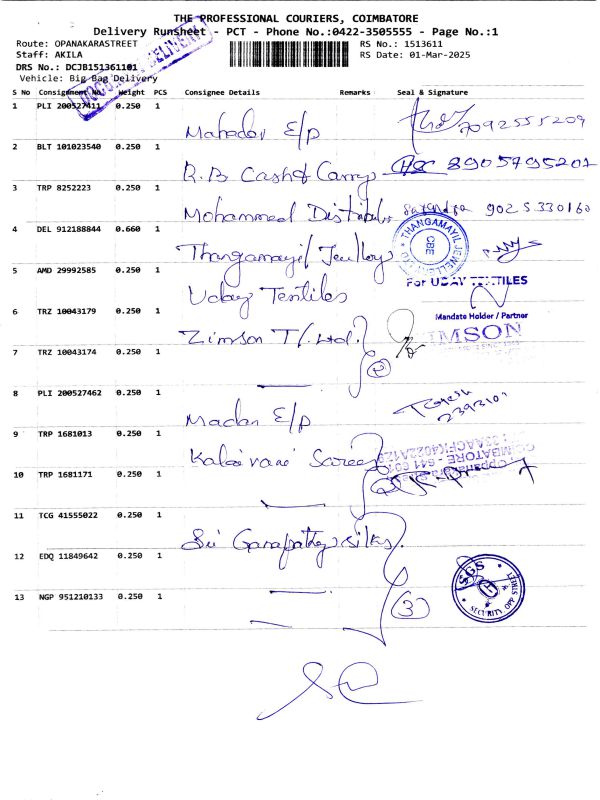 THE PROFESSIONAL COURIERS, COIMBATORE
Delivery Runsheet - PCT - Phone No.:0422-3505555 - Page No.:1
Route: OPANAKARASTREET
Staff: AKILA
DRS No.: DCJB151361101
Vehicle: Big Bag Delivery
RS No.: 1513611
RS Date: 01-Mar-2025
DELIVERY
S No Consignment No. Weight PCS Consignee Details Remarks Seal & Signature
1 PLI 200527411 0.250 1
Mahadev E/p 7092555209
2 BLT 101023540 0.250 1
R.B Cash & Carry 8905795201
3 TRP 8252223 0.250 1
Mohammed Distributor 9025330160
4 DEL 912188844 0.660 1
Thangamayil Jewllery
THANGAMAYIL JEWELLERY LTD
CBE
5 AMD 29992585 0.250 1
Uday Textiles
For UDAY TEXTILES
Mandate Holder / Partner
6 TRZ 10043179 0.250 1
Zimson T/. Ltd.
ZIMSON
7 TRZ 10043174 0.250 1
2
8 PLI 200527462 0.250 1
Madan E/p
9 TRP 1681013 0.250 1
Kalaivani Sarees
COIMBATORE - 641 001
10 TRP 1681171 0.250 1
11 TCG 41555022 0.250 1
Sri Ganapathy silks.
12 EDQ 11849642 0.250 1
13 NGP 951210133 0.250 1
3
SGS
SECURITY OPP STREET